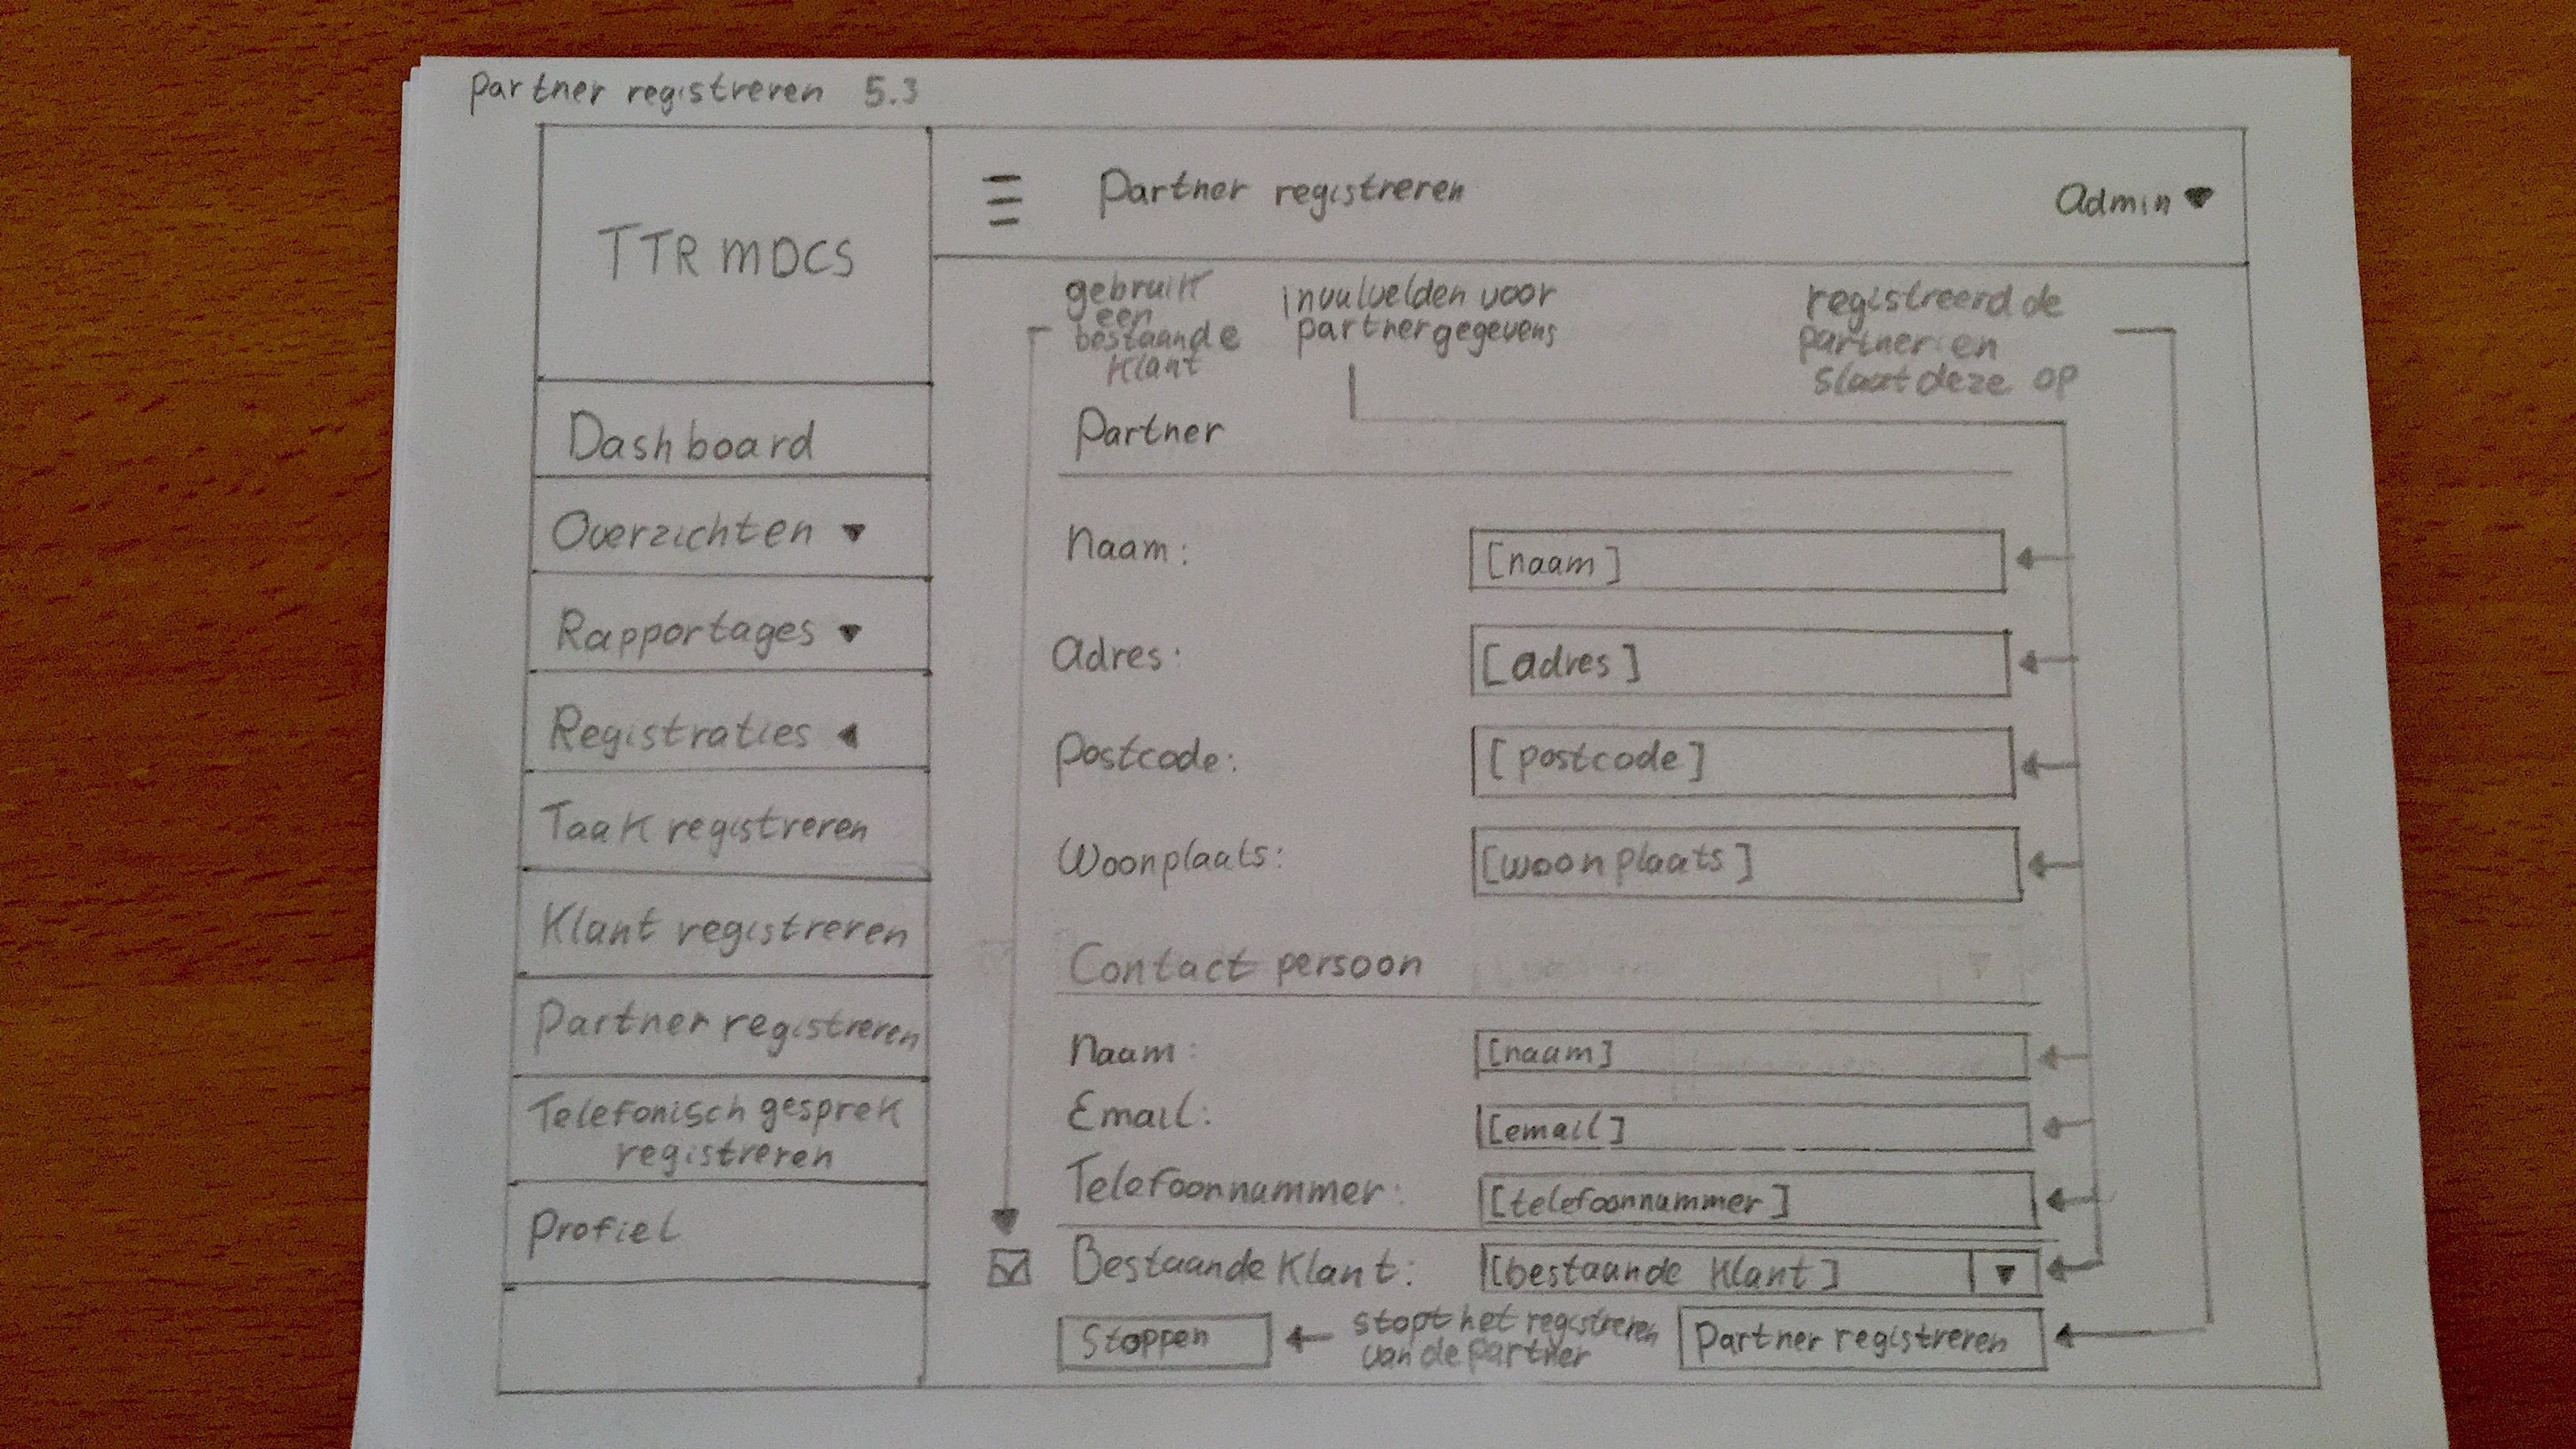 Partner registreren 5.3
TTR MDCS
Dashboard
Overzichten
Rapportages
Registraties
Taak registreren
Klant registreren
Partner registreren
Telefonisch gesprek
registreren
Profiel
Partner registreren
Admin
gebruikt
een
bestaande
klant
invulvelden voor
partnergegevens
registreerd de
partner en
slaat deze op
Partner
Naam:
[naam]
Adres:
[adres]
Postcode:
[postcode]
Woonplaats:
[woonplaats]
Contact persoon
Naam:
[naam]
Email:
[email]
Telefoonnummer:
[telefoonnummer]
Bestaande klant:
[bestaande klant]
Stoppen
stopt het registreren
van de partner
Partner registreren